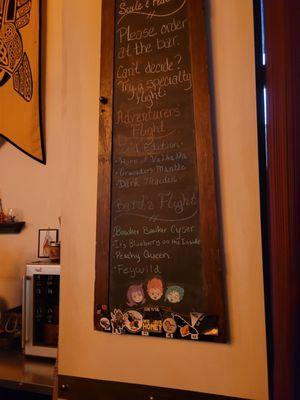 Scale &
Please order
at the bar.
Can't decide?
Try a specialty
flight:
Adventurers
Flight
2nd Edition
• Horn of Valhalla
• Crusaders Mantle
• Dark
Bard's Flight
• Bowker Bowker Cyser
• It's Blueberry on the Inside
• Peachy Queen
• Feywild
HONEY